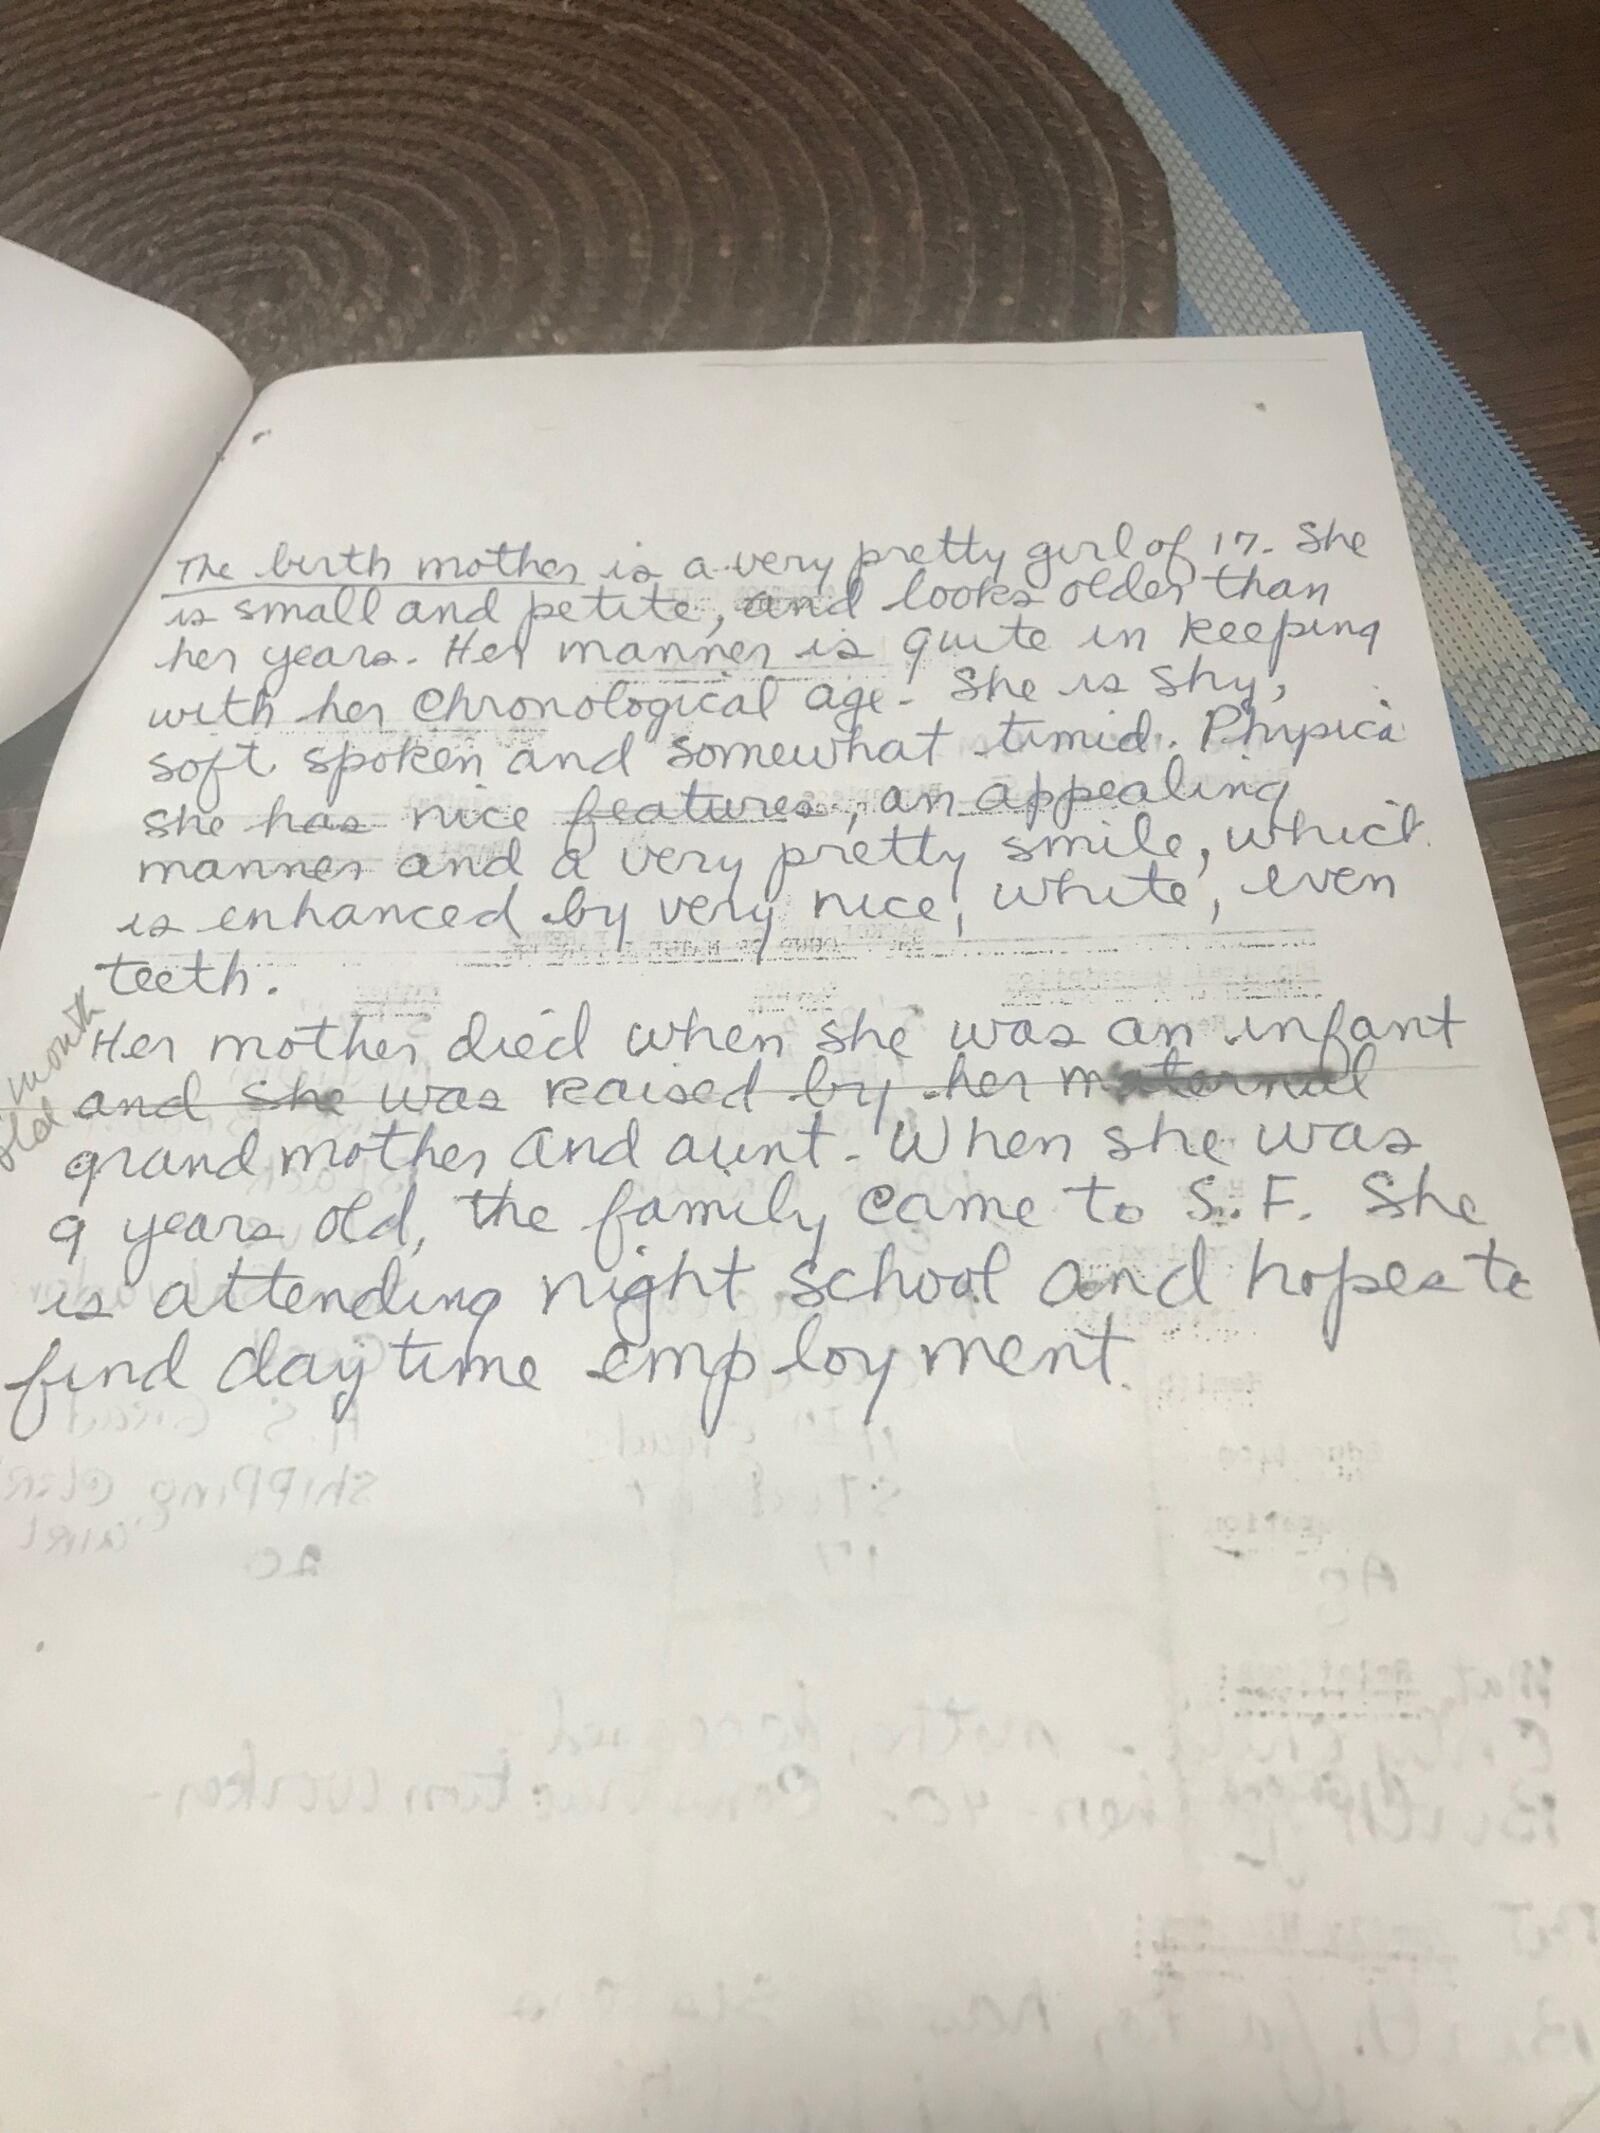 The birth mother is a very pretty girl of 17. She
is small and petite, and looks older than
her years. Her manner is quite in keeping
with her chronological age. She is shy,
soft spoken and somewhat timid. Physica
she has nice features, an appealing
manner and a very pretty smile, which
is enhanced by very nice, white, even
teeth.
month
old
Her mother died when she was an infant
and she was raised by her maternal
grandmother and aunt. When she was
9 years old, the family came to S.F. She
is attending night school and hopes to
find daytime employment.